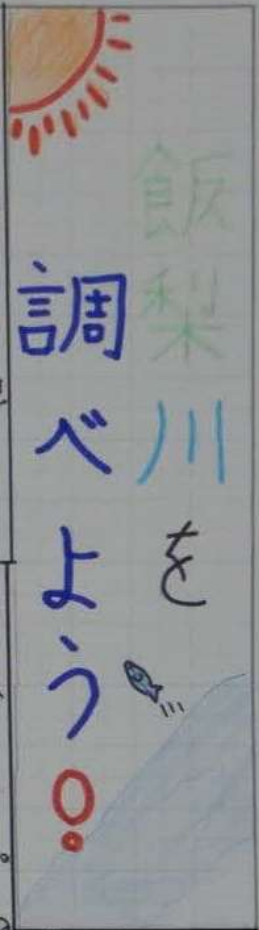 飯梨川を
調べよう!